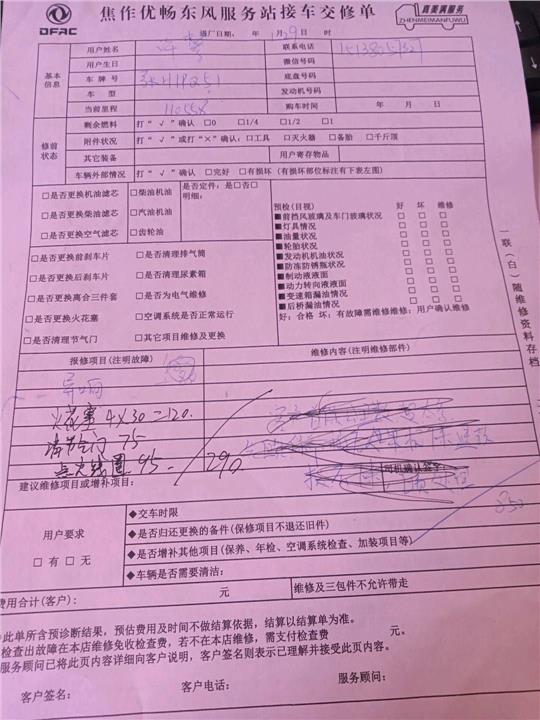 DFAC
焦作优畅东风服务站接车交修单
真美满服务
ZHENMEIMANFUWU
进厂日期: 年 1月29日 时
用户姓名 联系电话
用户生日 微信号码
基本信息
车牌号 底盘号码
车型 发动机号码
当前里程 110558 购车时间 年 月 日
修前状态
剩余燃料 打“√”确认 □0 □1/4 □1/2 □1
附件状况 打“√”或打“×”确认:□工具 □灭火器 □备胎 □千斤顶
其它装备 用户寄存物品
车辆外部情况 打“√”确认 □完好 □有损坏(有损坏部位标注有下表左图)
□是否更换机油滤芯 □柴油机油 是否定件:是□否□
明细:
□是否更换柴油滤芯 □汽油机油
□是否更换空气滤芯 □齿轮油
□是否更换前刹车片 □是否清理排气筒
□是否更换后刹车片 □是否清理尿素箱
□是否更换离合三件套 □是否为电气维修
□是否更换火花塞 □空调系统是否正常运行
□是否清理节气门 □其它项目维修及更换
预检(目视) 好 坏 维修
■前挡风玻璃及车门玻璃状况 □ □ □
■灯具情况 □ □ □
■油量状况 □ □ □
■轮胎状况 □ □ □
■发动机机油状况 □ □ □
■防冻防锈瓶状况 □ □ □
■制动液液面 □ □ □
■动力转向液液面 □ □ □
■变速箱漏油情况 □ □ □
■后桥漏油情况 □ □ □
好:合格 坏:有故障需维修维修:用户确认维修
一联(白)随维修资料存档
报修项目(注明故障) 维修内容(注明维修部件)
异响
火花塞 4×30=120.
清节气门 75
点火线圈 95 - 290
司机确认签字:
建议维修项目或增补项目:
850
用户要求
□有 □无
◆交车时限
◆是否归还更换的备件(保修项目不退还旧件)
◆是否增补其他项目(保养、年检、空调系统检查、加装项目等)
◆车辆是否需要清洁:
费用合计(客户): 元 维修及三包件不允许带走
此单所含预诊断结果,预估费用及时间不做结算依据,结算以结算单为准。
检查出故障在本店维修免收检查费,若不在本店维修,需支付检查费 元。
服务顾问已将此页内容详细向客户说明,客户签名则表示已理解并接受此页内容。
客户签名: 客户电话: 服务顾问: